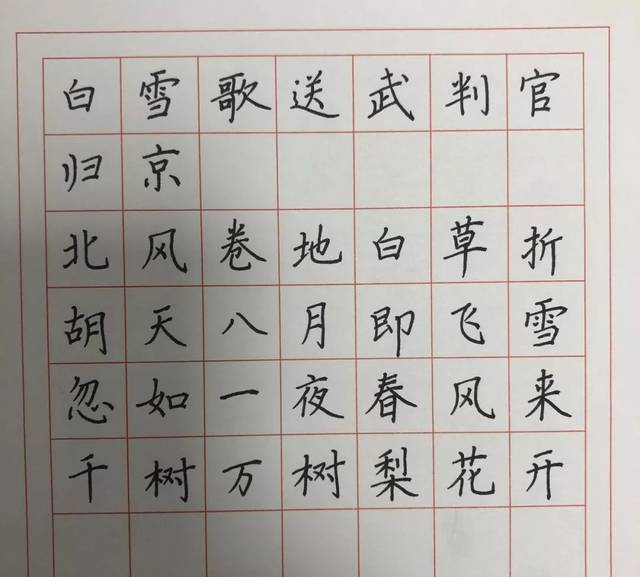 白雪歌送武判官
归京
北风卷地白草折
胡天八月即飞雪
忽如一夜春风来
千树万树梨花开